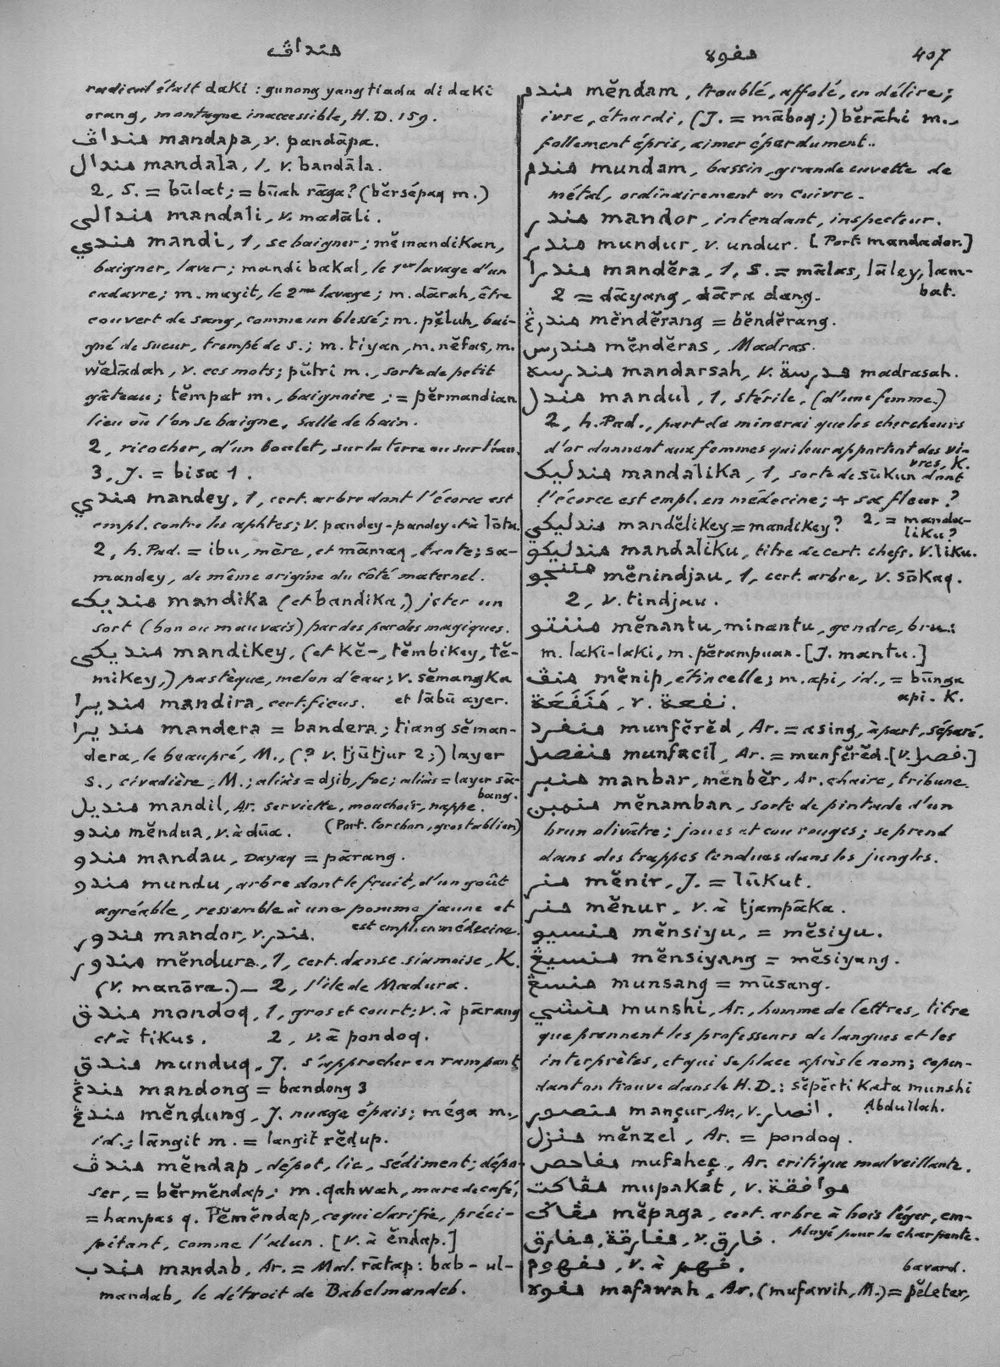 منداڤ
مفوه 407
radical était daki : gunong yang tiada di daki
orang, montagne inaccessible, H.D. 159.
منداڤ mandapa, v. pandāpa.
مندال mandala, 1, v. bandāla.
2, S. = būlat; = būah rāga? (bĕrsépaq m.)
مندالي mandali, v. madāli.
مندي mandi, 1, se baigner; mĕmandikan,
baigner, laver; mandi bakal, le 1er lavage d'un
cadavre; m. mayit, le 2me lavage; m. dārah, être
couvert de sang, comme un blessé; m. pĕluh, bai-
gné de sueur, trempé de s.; m. tiyan, m. nĕfas, m.
wĕlādah, v. ces mots; pŭtri m., sorte de petit
gâteau; tĕmpat m., baignoire; = pĕrmandian
lieu où l'on se baigne, salle de bain.
2, ricocher, d'un boulet, sur la terre ou sur l'eau.
3, J. = bisa 1.
مندي mandey, 1, cert. arbre dont l'écorce est
empl. contre les aphtes; v. pandey-pandey et à lōta
2, h. Pad. = ibu, mère, et māmaq, tante; sa-
mandey, de même origine du côté maternel.
منديک mandika (et bandika,) jeter un
sort (bon ou mauvais) par des paroles magiques.
منديکي mandikey, (et kĕ-, tĕmbikey, tĕ-
mikey,) pastèque, melon d'eau; v. sĕmangka
et lābū ayer.
منديرا mandira, cert. ficus.
منديرا mandera = bandera; tiang sĕman-
dera, le beaupré, M., (? v. tjūtjur 2;) layer
s., civadière, M.; aliàs = djib, foc; aliàs = layer sā-
bang.
منديل mandil, Ar. serviette, mouchoir, nappe.
(Port. torchon, gros tablier)
مندو mĕndua, v. à dūa.
مندو mandau, Dayaq = pārang.
مندو mundu, arbre dont le fruit, d'un goût
agréable, ressemble à une pomme jaune et
est empl. en médecine.
مندور mandor, v. مندر.
مندور mĕndura, 1, cert. danse siamoise, K.
(v. manōra.) — 2, l'île de Madura.
مندق mondoq, 1, gros et court; v. à pārang
et à tikus. 2, v. à pondoq.
مندق munduq, J. s'approcher en rampant
مندڠ mandong = bandong 3
مندڠ mĕndung, J. nuage épais; méga m.,
id.; lāngit m. = langit rĕdup.
مندڤ mĕndap, dépot, lie, sédiment; dépo-
ser, = bĕrmĕndap; m. qahwah, marc de café,
= hampas q. Pĕmĕndap, ce qui clarifie, préci-
pitant, comme l'alun. [v. à ĕndap.]
مندب mandab, Ar. = Mal. rātap: bab-ul-
mandab, le détroit de Babelmandeb.
مندم mĕndam, troublé, affolé, en délire;
ivre, étourdi, (J. = māboq;) bĕrāhi m.,
follement épris, aimer éperdument.
مندم mundam, bassin, grande cuvette de
métal, ordinairement en cuivre.
مندر mandor, intendant, inspecteur.
[Port. mandador.]
مندر mundur, v. undur.
مندرا mandĕra, 1, S. = mālas, lāley, lam-
bat.
2 = dāyang, dāra dang.
مندرڠ mĕndĕrang = bĕndĕrang.
مندرس mĕndĕras, Madras.
مندرسه mandarsah, v. مدرسة madrasah.
مندل mandul, 1, stérile, (d'une femme.)
2, h. Pad., part de minerai que les chercheurs
d'or donnent aux femmes qui leur apportent des vi-
vres, K.
مندليک mandalika, 1, sorte de sūkun dont
l'écorce est empl. en médecine; + sa fleur?
2, = manda-
liku?
مندليکي mandĕlikey = mandikey?
مندليکو mandaliku, titre de cert. chefs. v. liku.
منينجو mĕnindjau, 1, cert. arbre, v. sōkaq.
2, v. tindjau.
مننتو mĕnantu, minantu, gendre, bru;
m. laki-laki, m. pĕrampuan. [J. mantu.]
منڤ mĕnip, étincelle; m. api, id., = būnga
api. K.
مَنْفَعَة, v. نفعة.
منفرد munfĕrĕd, Ar. = asing, à part, séparé.
منفصل munfacil, Ar. = munfĕrĕd. [v. فصل.]
منبر manbar, mĕnbĕr, Ar. chaire, tribune.
منمبن mĕnamban, sorte de pintade d'un
brun olivâtre; joues et cou rouges; se prend
dans des trappes tendues dans les jungles.
منر mĕnir, J. = lūkut.
منر mĕnur, v. à tjampāka.
منسيو mĕnsiyu, = mĕsiyu.
منسيڠ mĕnsiyang = mĕsiyang.
منسڠ munsang = mūsang.
منشي munshi, Ar., homme de lettres, titre
que prennent les professeurs de langues et les
interprètes, et qui se place après le nom; cepen-
dant on trouve dans le H.D.: sĕpĕrti kata munshi
Abdullah.
منصور mançur, Ar., v. انصار.
منزل mĕnzel, Ar. = pondoq.
مفاحص mufaheç, Ar. critique malveillante.
مڤاکت mupakat, v. موافقة
مڤاݢ mĕpaga, cert. arbre à bois léger, em-
ployé pour la charpente.
مفارقة, مفارق, v. فارق.
مفهوم, v. à فهم.
bavard.
مفوه mafawah, Ar. (mufawih, M.) = pĕleter,